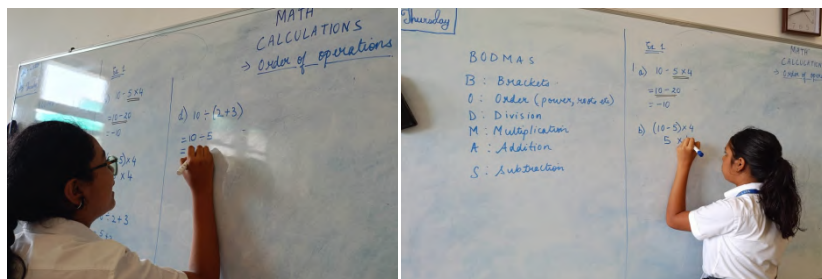 MATH
CALCULATIONS
→ Order of operations
10 - 5 × 4
= 10 - 20
= -10
5) × 4
× 4
- 2 + 3
d) 10 ÷ (2+3)
= 10 - 5
=
Thursday
BODMAS
B : Brackets
O : Order (power, roots etc)
D : Division
M : Multiplication
A : Addition
S : Subtraction
a) 10 - 5 × 4
= 10 - 20
= -10
b) (10 - 5) × 4
5 ×
MATH
CALCULATION
→ Order of ope